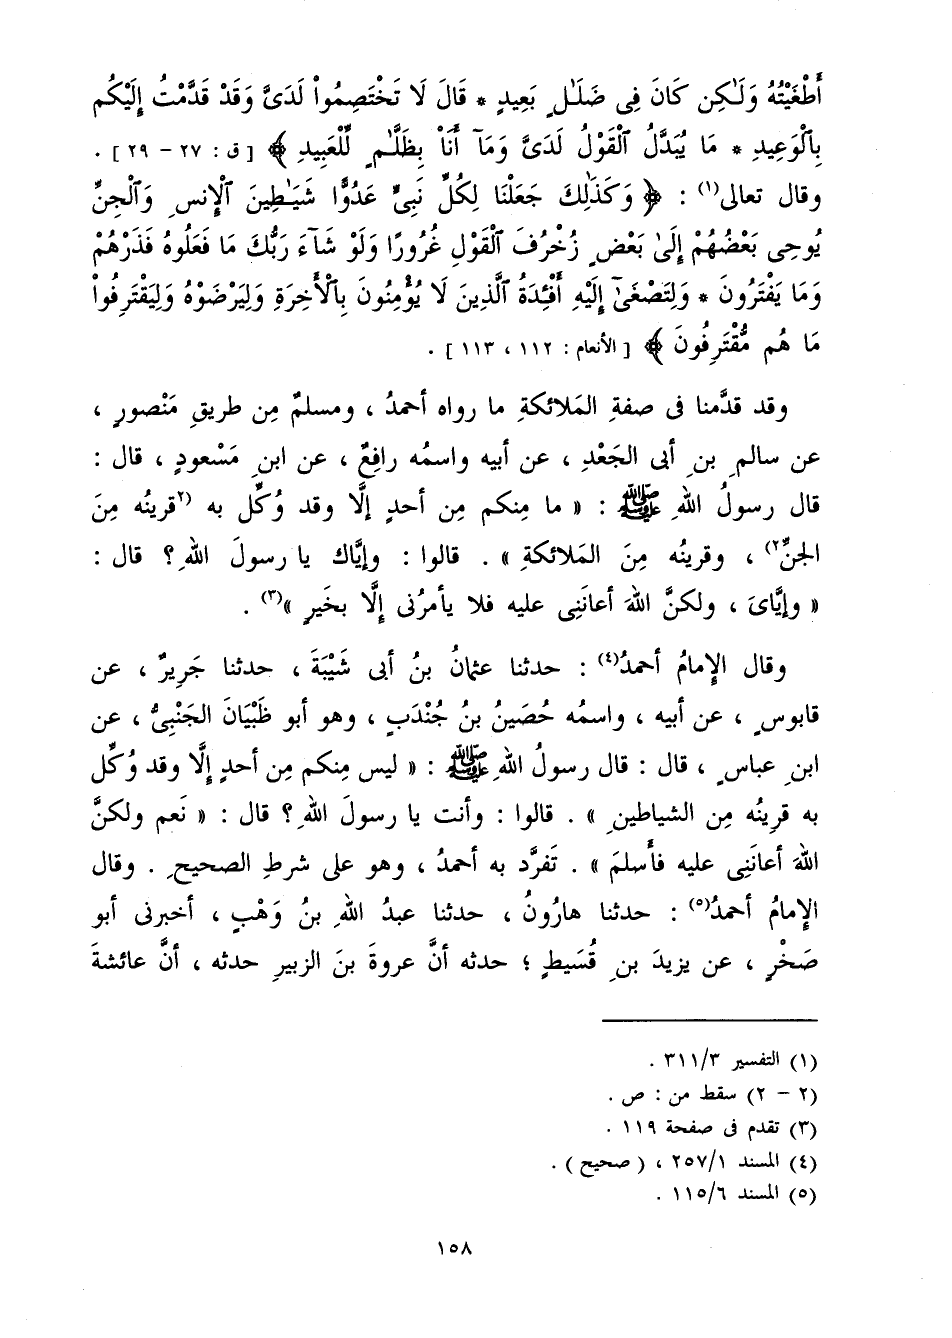 أَطْغَيْتُهُ وَلَٰكِن كَانَ فِى ضَلَٰلٍ بَعِيدٍ * قَالَ لَا تَخْتَصِمُواْ لَدَىَّ وَقَدْ قَدَّمْتُ إِلَيْكُم
بِٱلْوَعِيدِ * مَا يُبَدَّلُ ٱلْقَوْلُ لَدَىَّ وَمَآ أَنَاْ بِظَلَّٰمٍ لِّلْعَبِيدِ ﴾ [ ق : ٢٧ - ٢٩ ] .
وقال تعالى(١) : ﴿ وَكَذَٰلِكَ جَعَلْنَا لِكُلِّ نَبِىٍّ عَدُوًّا شَيَٰطِينَ ٱلْإِنسِ وَٱلْجِنِّ
يُوحِى بَعْضُهُمْ إِلَىٰ بَعْضٍ زُخْرُفَ ٱلْقَوْلِ غُرُورًا وَلَوْ شَآءَ رَبُّكَ مَا فَعَلُوهُ فَذَرْهُمْ
وَمَا يَفْتَرُونَ * وَلِتَصْغَىٰٓ إِلَيْهِ أَفْـِٔدَةُ ٱلَّذِينَ لَا يُؤْمِنُونَ بِٱلْأَخِرَةِ وَلِيَرْضَوْهُ وَلِيَقْتَرِفُواْ
مَا هُم مُّقْتَرِفُونَ ﴾ [ الأنعام : ١١٢ ، ١١٣ ] .
وقد قدَّمنا فى صفةِ المَلائكةِ ما رواه أحمدُ ، ومسلمٌ مِن طريقِ مَنْصورٍ ،
عن سالمِ بنِ أبى الجَعْدِ ، عن أبيه واسمُه رافِعٌ ، عن ابنِ مَسْعودٍ ، قال :
قال رسولُ اللهِ ﷺ : « ما مِنكم مِن أحدٍ إلَّا وقد وُكِّل به (٢قرينُه مِنَ
الجنِّ٢) ، وقرينُه مِنَ المَلائكةِ » . قالوا : وإيَّاك يا رسولَ اللهِ ؟ قال :
« وإيَّاىَ ، ولكنَّ اللهَ أعانَنِى عليه فلا يأمرُنى إلَّا بخَيرٍ »(٣) .
وقال الإمامُ أحمدُ(٤) : حدثنا عثمانُ بنُ أبى شَيْبَةَ ، حدثنا جَرِيرٌ ، عن
قابوسٍ ، عن أبيه ، واسمُه حُصَينُ بنُ جُندَبٍ ، وهو أبو ظَبْيَانَ الجَنْبِىُّ ، عن
ابنِ عباسٍ ، قال : قال رسولُ اللهِ ﷺ : « ليس مِنكم مِن أحدٍ إلَّا وقد وُكِّل
به قرِينُه مِن الشياطينِ » . قالوا : وأنت يا رسولَ اللهِ ؟ قال : « نَعم ولكنَّ
اللهَ أعانَنِى عليه فأَسلمَ » . تَفرَّد به أحمدُ ، وهو على شرطِ الصحيحِ . وقال
الإمامُ أحمدُ(٥) : حدثنا هارُونُ ، حدثنا عبدُ اللهِ بنُ وَهْبٍ ، أخبرنى أبو
صَخْرٍ ، عن يزيدَ بنِ قُسَيطٍ ؛ حدثه أنَّ عروةَ بنَ الزبيرِ حدثه ، أنَّ عائشةَ
(١) التفسير ٣١١/٣ .
(٢ - ٢) سقط من : ص .
(٣) تقدم فى صفحة ١١٩ .
(٤) المسند ٢٥٧/١ ، ( صحيح ) .
(٥) المسند ١١٥/٦ .
١٥٨